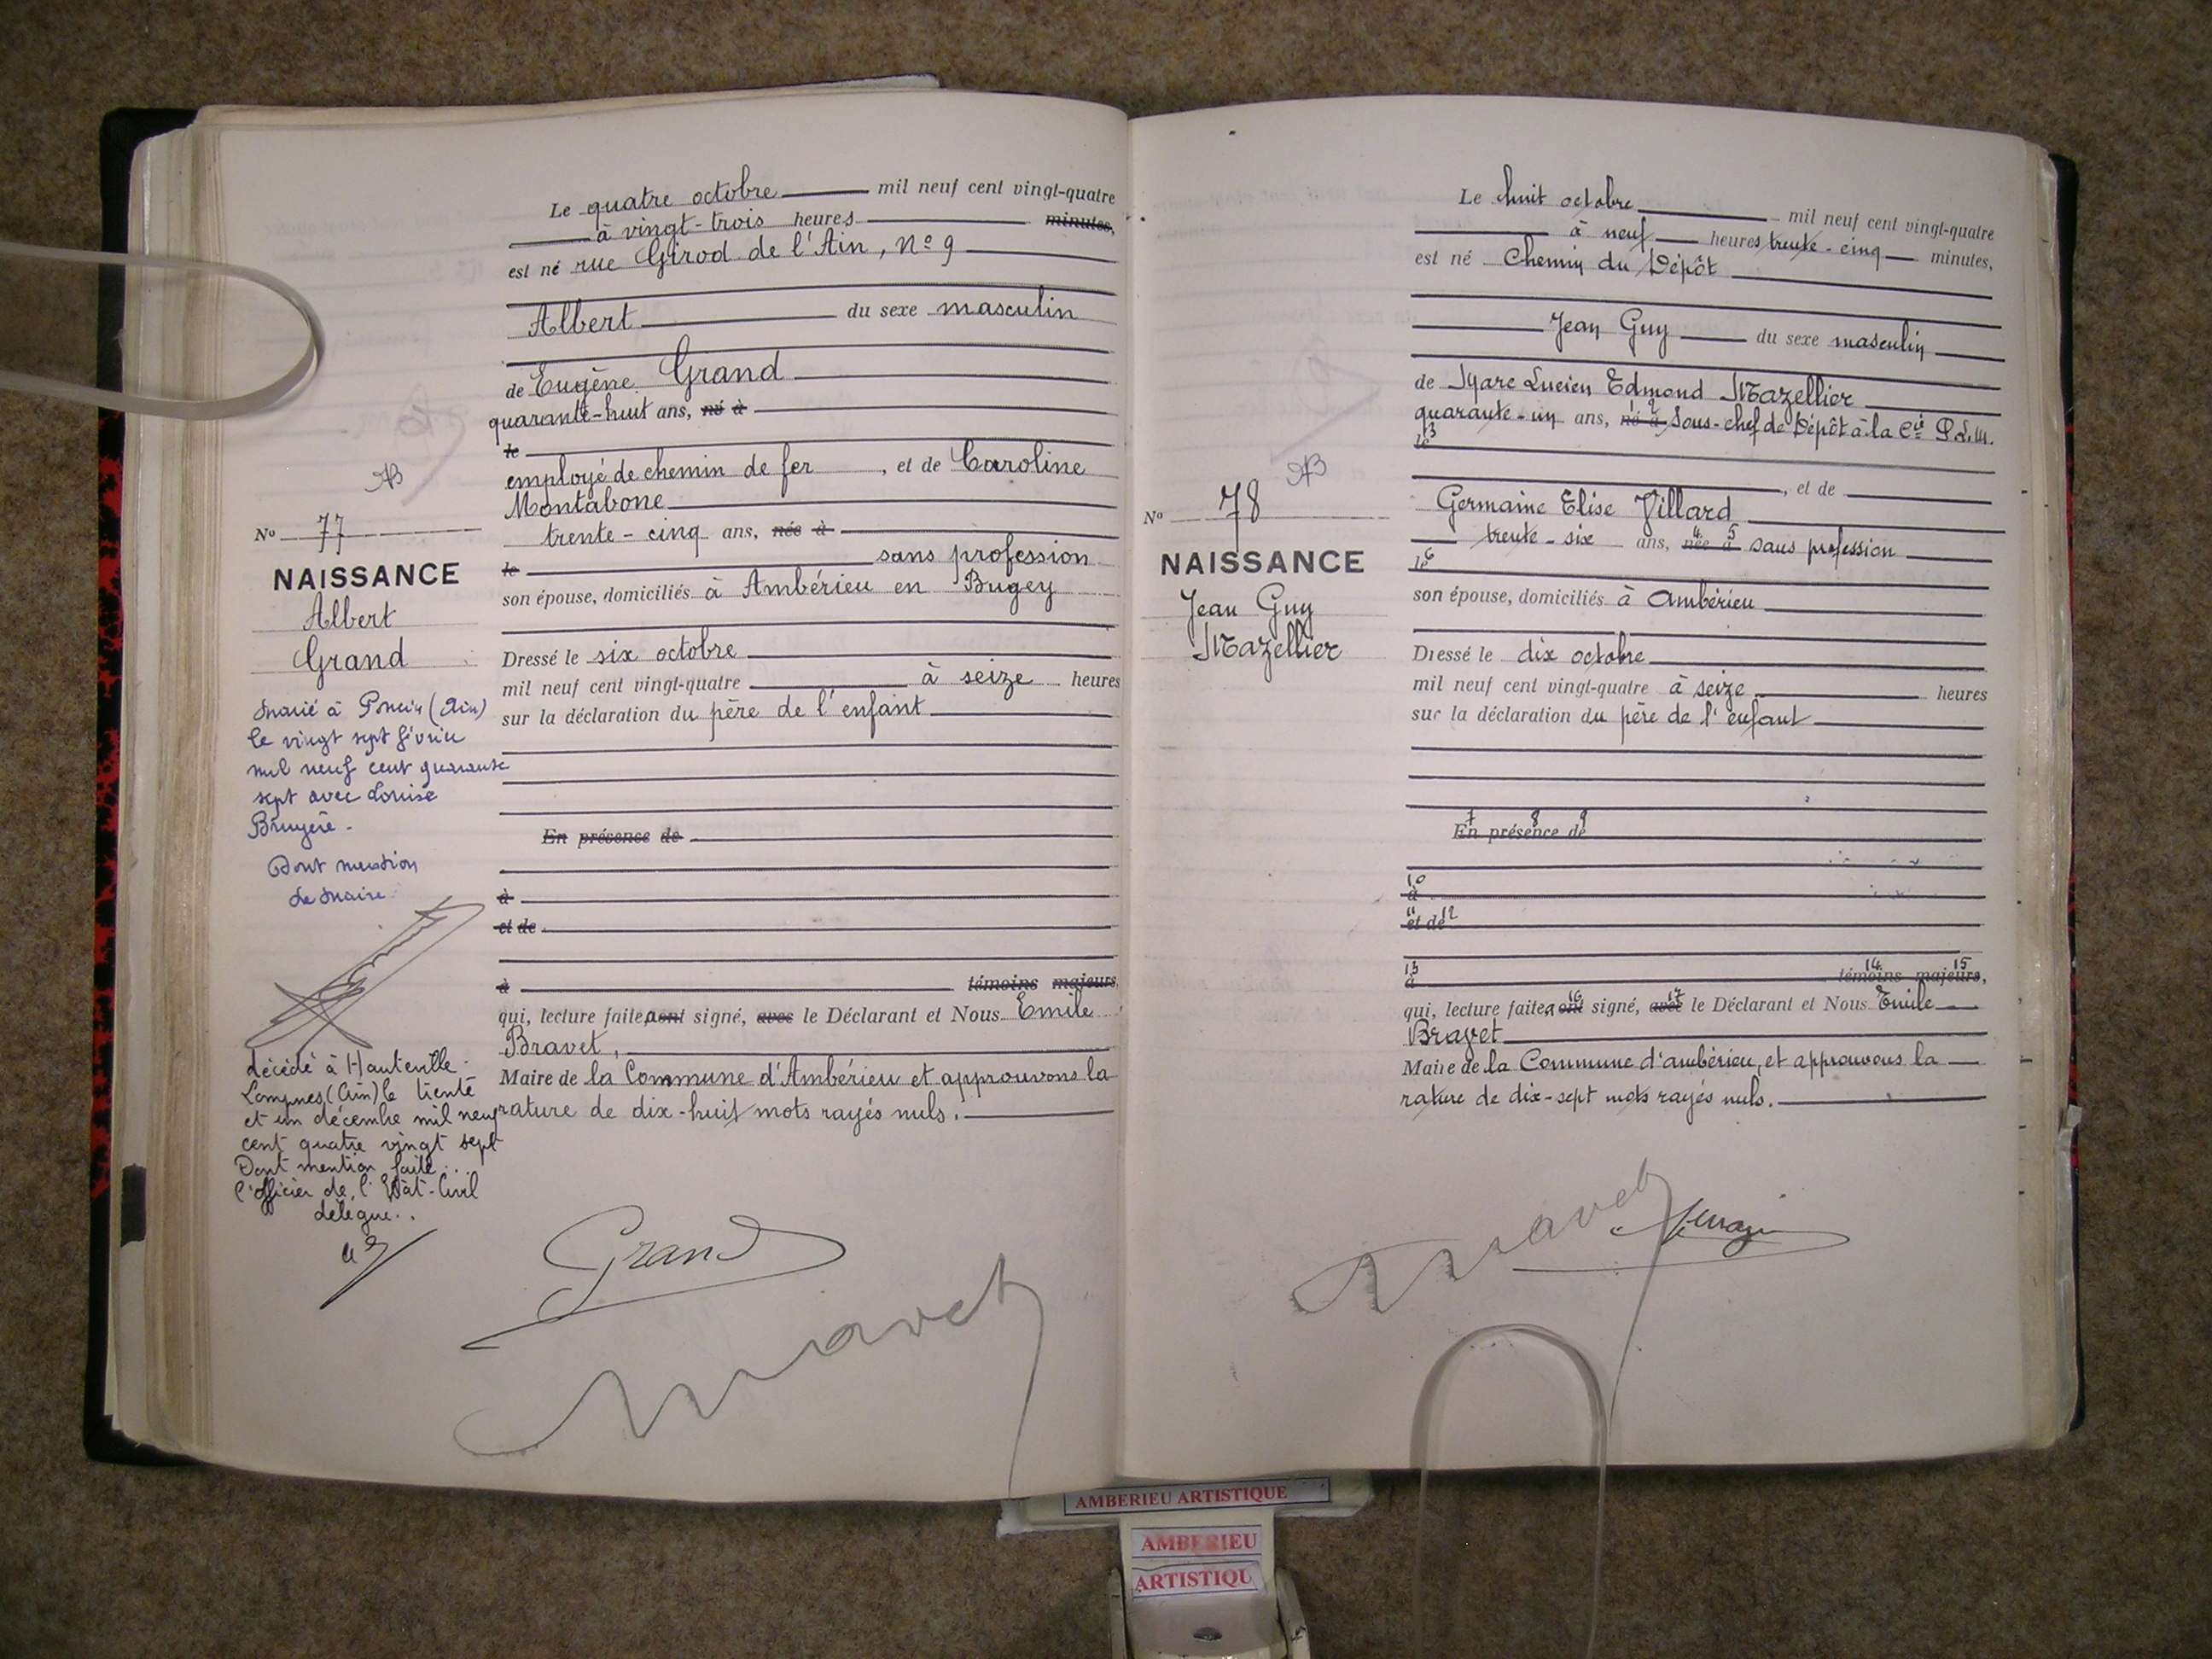 AB
Nº 77
NAISSANCE
Albert
Grand
Marié à Poncin (Ain)
le vingt sept février
mil neuf cent quarante
sept avec Louise
Bruyère.
Dont mention
Le Maire
décédé à Hauteville-
Lompnes (Ain) le trente
et un décembre mil neuf
cent quatre vingt sept
Dont mention faite...
l'officier de l'Etat-Civil
délégué..
Le quatre octobre mil neuf cent vingt-quatre
à vingt-trois heures minutes,
est né rue Girod de l'Ain, nº 9
Albert du sexe masculin
de Eugène Grand
quarante-huit ans, né à
le
employé de chemin de fer, et de Caroline
Montabone
trente-cinq ans, née à
le sans profession
son épouse, domiciliés à Ambérieu en Bugey
Dressé le six octobre
mil neuf cent vingt-quatre à seize heures
sur la déclaration du père de l'enfant
En présence de
à
et de
à témoins majeurs,
qui, lecture faite, a ont signé, avec le Déclarant et Nous Emile
Bravet,
Maire de la Commune d'Ambérieu et approuvons la
rature de dix-huit mots rayés nuls.
Grand
Bravet
AB
Nº 78
NAISSANCE
Jean Guy
Mazellier
Le huit octobre mil neuf cent vingt-quatre
à neuf heures trente-cinq minutes,
est né Chemin du Dépôt
Jean Guy du sexe masculin
de Marc Lucien Edmond Mazellier
1 2
quarante-un ans, né à Sous-chef de Dépôt à la Cie P.L.M.
3
le
, et de
Germaine Elise Villard
4 5
trente-six ans, née à sans profession
6
le
son épouse, domiciliés à Ambérieu
Dressé le dix octobre
mil neuf cent vingt-quatre à seize heures
sur la déclaration du père de l'enfant
7 8 9
En présence de
10
à
11 12
et de
13 14 15
à témoins majeurs,
16 17
qui, lecture faite, a ont signé, avec le Déclarant et Nous Emile
Bravet
Maire de la Commune d'Ambérieu, et approuvons la
rature de dix-sept mots rayés nuls.
Bravet
AMBERIEU ARTISTIQUE
AMBERIEU
ARTISTIQU